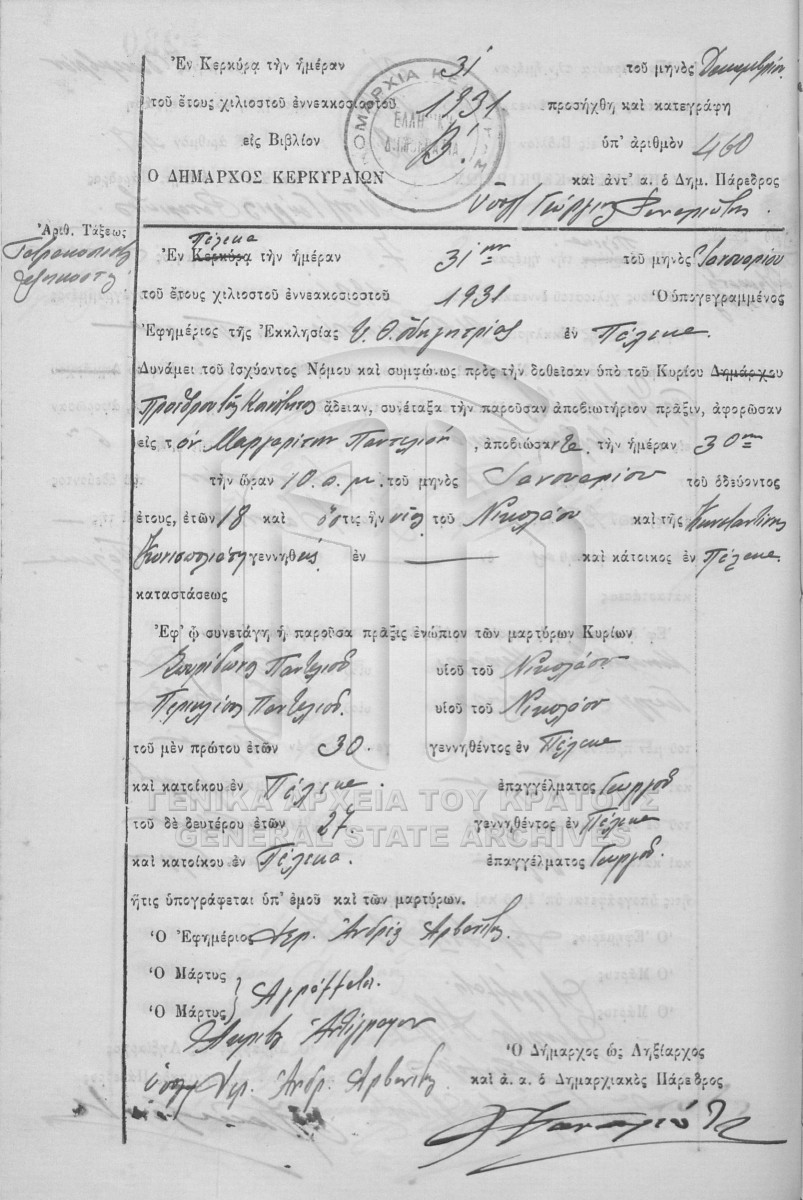 Ἐν Κερκύρᾳ τὴν ἡμέραν 31 τοῦ μηνὸς Δεκεμβρίου
τοῦ ἔτους χιλιοστοῦ ἐννεακοσιοστοῦ 1931 προσήχθη καὶ κατεγράφη
εἰς Βιβλίον Β΄. ὑπ' ἀριθμὸν 460
Ο ΔΗΜΑΡΧΟΣ ΚΕΡΚΥΡΑΙΩΝ καὶ ἀντ' α. ὁ Δημ. Πάρεδρος
Γεώργιος
ΕΛΛΗΝΙΚΗ
ΔΗΜΟΚΡΑΤΙΑ
Ἀριθ. Τάξεως
Τετρακοσιοστὴ
ἑξηκοστὴ
Πέλεκα
Ἐν Κερκύρᾳ τὴν ἡμέραν 31ην τοῦ μηνὸς Ἰανουαρίου
τοῦ ἔτους χιλιοστοῦ ἐννεακοσιοστοῦ 1931 Ὁ ὑπογεγραμμένος
Ἐφημέριος τῆς Ἐκκλησίας Υ. Θ. Ὁδηγητρίας ἐν Πέλεκα.
Δυνάμει τοῦ ἰσχύοντος Νόμου καὶ συμφώνως πρὸς τὴν δοθεῖσαν ὑπὸ τοῦ Κυρίου Δημάρχου
Προέδρου τῆς Κοινότητος ἄδειαν, συνέταξα τὴν παροῦσαν ἀποβιωτήριον πρᾶξιν, ἀφορῶσαν
εἰς τὸν Μαργαρίτην Παντελιὸν, ἀποβιώσαντα τὴν ἡμέραν 30ην
τὴν ὥραν 10 π. μ. τοῦ μηνὸς Ἰανουαρίου τοῦ ὁδεύοντος
ἔτους, ἐτῶν 18 καὶ ὅστις ἦν υἱὸς τοῦ Νικολάου καὶ τῆς Κωνσταντίνας
γεννηθεὶς ἐν — καὶ κάτοικος ἐν Πέλεκα
καταστάσεως
Ἐφ' ᾧ συνετάγη ἡ παροῦσα πρᾶξις ἐνώπιον τῶν μαρτύρων Κυρίων
Σπυρίδωνος Παντελιοῦ υἱοῦ τοῦ Νικολάου
Περικλέους Παντελιοῦ υἱοῦ τοῦ Νικολάου
τοῦ μὲν πρώτου ἐτῶν 30. γεννηθέντος ἐν Πέλεκα
καὶ κατοίκου ἐν Πέλεκα. ἐπαγγέλματος Γεωργοῦ
ΓΕΝΙΚΑ ΑΡΧΕΙΑ ΤΟΥ ΚΡΑΤΟΥΣ
τοῦ δὲ δευτέρου ἐτῶν 27. γεννηθέντος ἐν Πέλεκα
GENERAL STATE ARCHIVES
καὶ κατοίκου ἐν Πέλεκα. ἐπαγγέλματος Γεωργοῦ.
ἥτις ὑπογράφεται ὑπ' ἐμοῦ καὶ τῶν μαρτύρων.
Ὁ Ἐφημέριος Ἱερ. Ἀνδρέας Ἀρβανίτης.
Ὁ Μάρτυς
Ἀγράμματοι.
Ὁ Μάρτυς
Ἀκριβὲς Ἀντίγραφον
Ἱερ. Ἀνδρ. Ἀρβανίτης
Ὁ Δήμαρχος ὡς Ληξίαρχος
καὶ ἀ. α. ὁ Δημαρχιακὸς Πάρεδρος